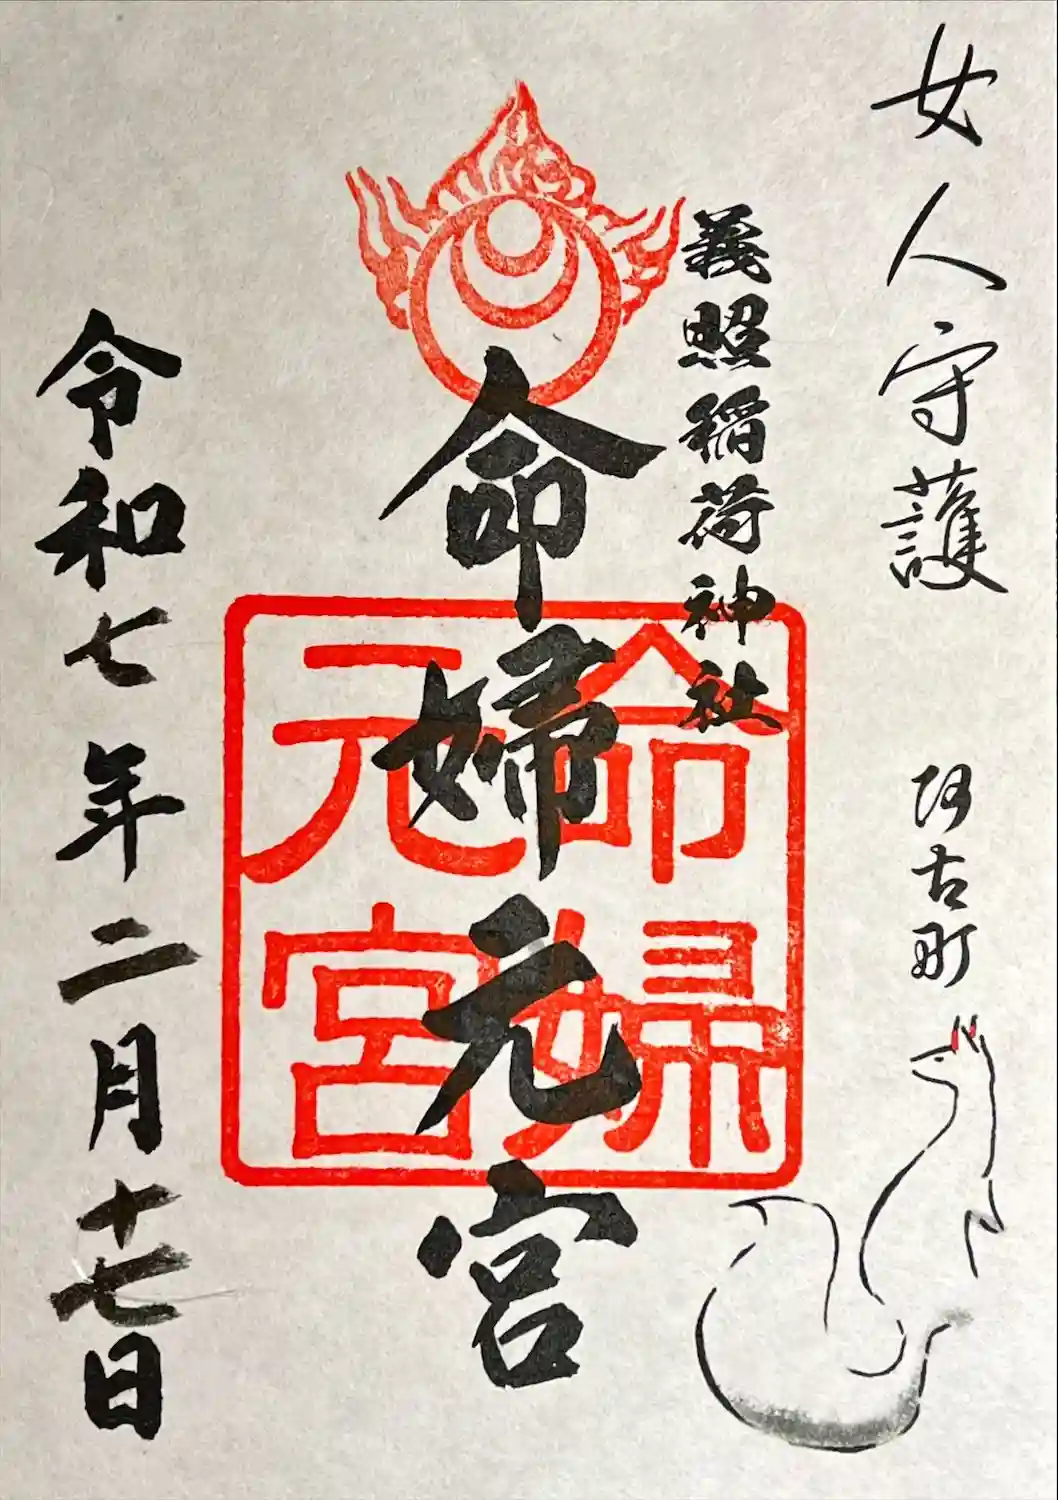 女人守護
阿古町
義照稲荷神社
命婦元宮
命婦
元宮
令和七年二月十七日